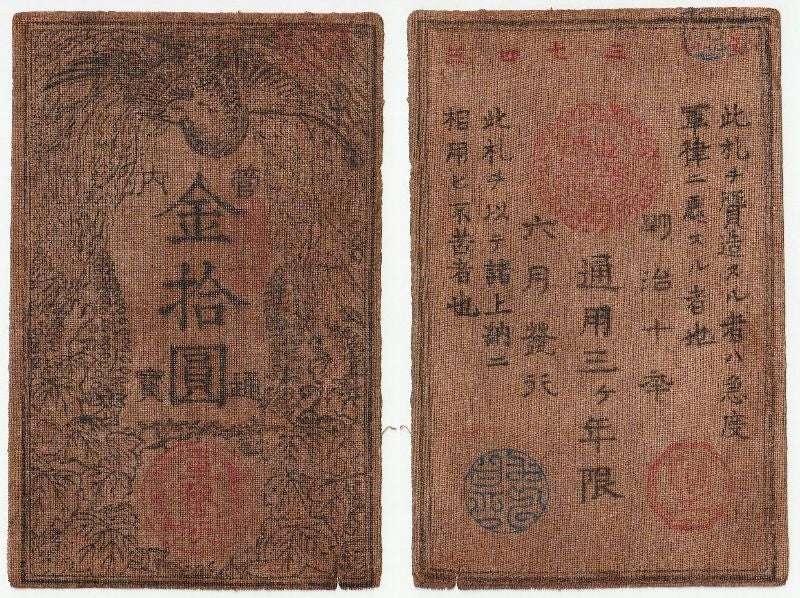 管内
金拾圓
通寳
三七四三
此札ヲ贋造スル者ハ急度
軍律ニ処スル者也
明治十年
通用三ヶ年限
六月發行
此札ヲ以テ諸上納ニ
相用ヒ不苦者也